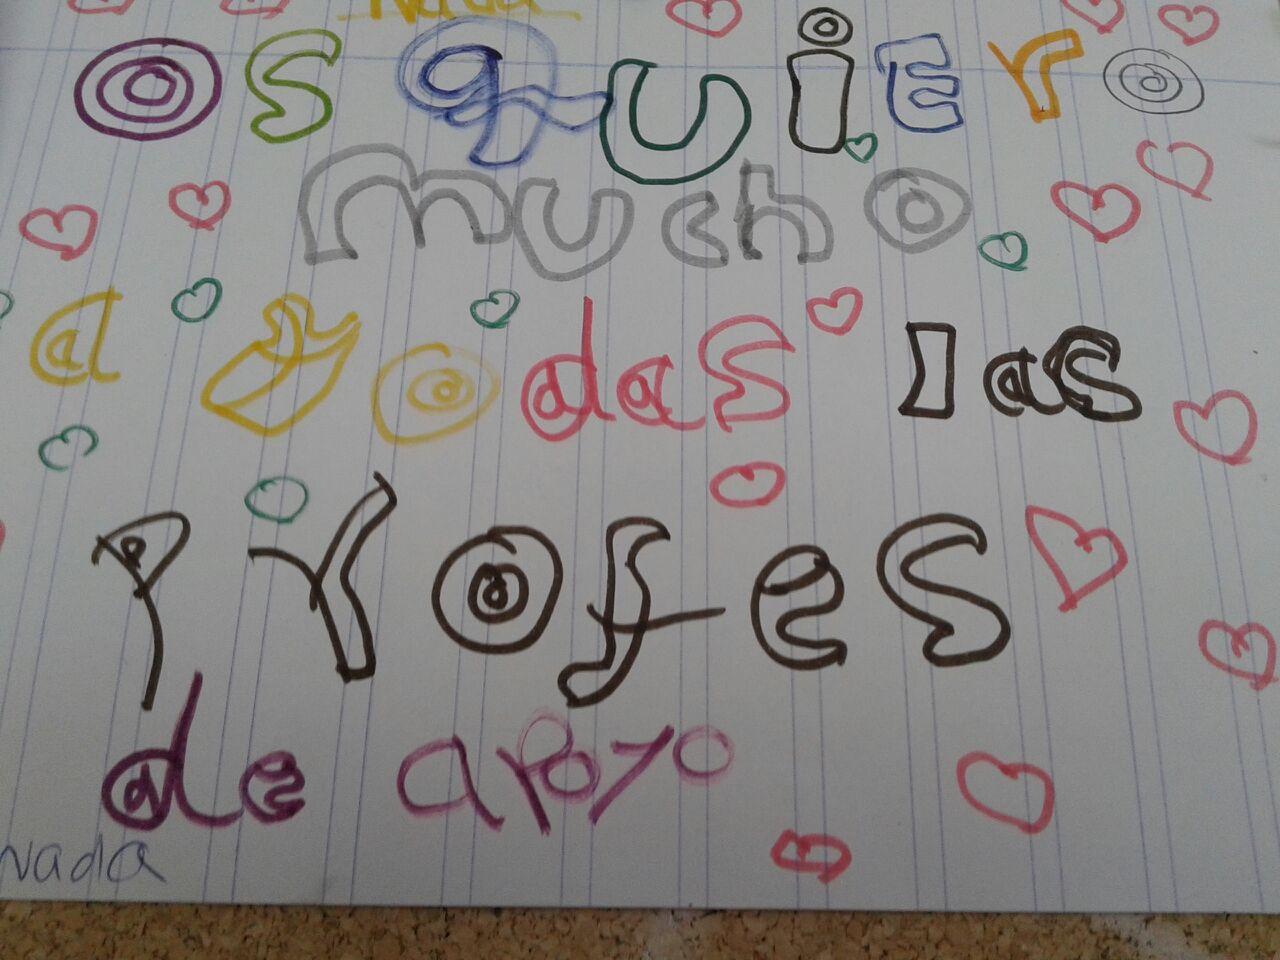 Nada
os quiEro
mucho
a todas las
profes
de apoyo
Nada